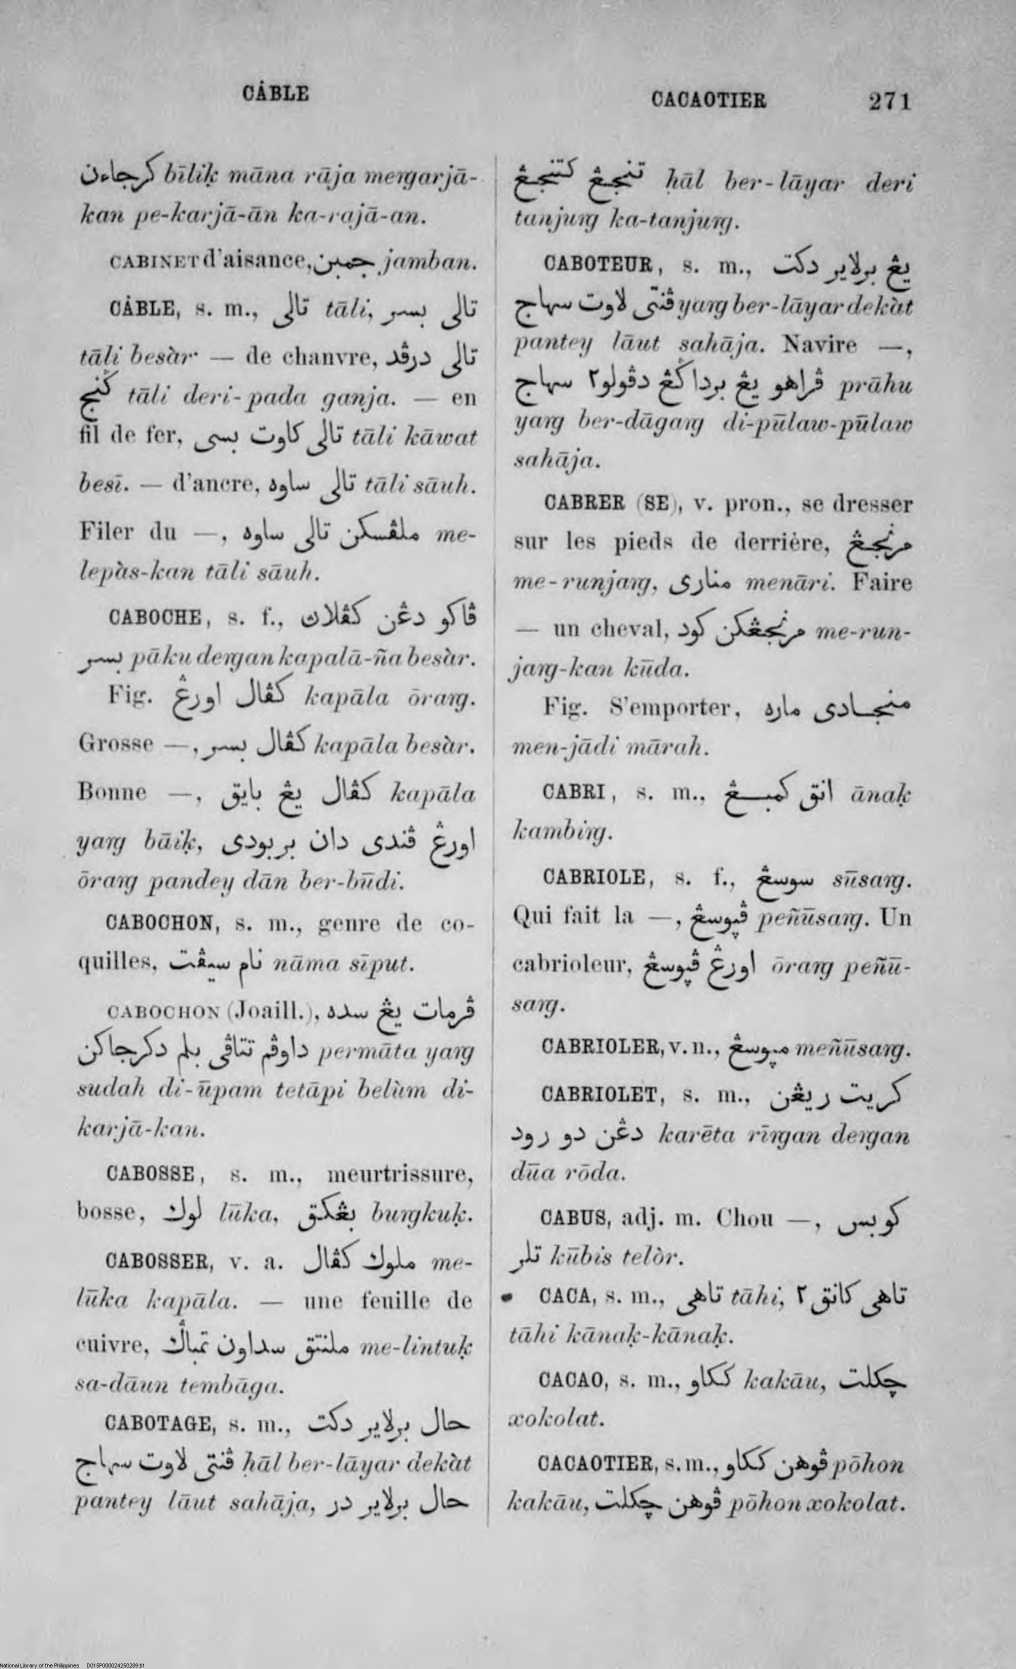 CÂBLE
CACAOTIER 271
كرجاءن bīliḳ māna rāja meꞑgarjā-
kan pe-karjā-ān ka-rajā-an.
CABINET d'aisance, جمبن jamban.
CÂBLE, s. m., تالى tāli, تالى بسر
tāli besàr — de chanvre, تالى درڤد
ݢنج tāli deri-pada ganja. — en
fil de fer, تالى كاوت بسى tāli kāwat
besī. — d'ancre, تالى ساوه tāli sāuh.
Filer du —, ملڤسكن تالى ساوه me-
lepàs-kan tāli sāuh.
CABOCHE, s. f., ڤاكو دڠن كڤلاڽ
بسر pāku deꞑgan kapalā-ña besàr.
Fig. كڤال اورڠ kapāla ōraꞑg.
Grosse —, كڤال بسر kapāla besàr.
Bonne —, كڤال يڠ بايق kapāla
yaꞑg bāiḳ, اورڠ ڤندى دان بربودى
ōraꞑg pandey dān ber-būdi.
CABOCHON, s. m., genre de co-
quilles, نام سيڤت nāma sīput.
CABOCHON (Joaill.), ڤرمات يڠ سده
داوڤم تتاڤى بلم دكرجاكن permāta yaꞑg
sudah di-ūpam tetāpi belùm di-
karjā-kan.
CABOSSE, s. m., meurtrissure,
bosse, لوك lūka, بڠكق buꞑgkuḳ.
CABOSSER, v. a. ملوك كڤال me-
lūka kapāla. — une feuille de
cuivre, ملنتق سداون تمباݢ me-lintuḳ
sa-dāun tembāga.
CABOTAGE, s. m., حال برلاير دكت
ڤنتى لاوت سهاج ḥāl ber-lāyar dekàt
pantey lāut sahāja, حال برلاير در
تنجڠ كتنجڠ ḥāl ber-lāyar deri
tanjuꞑg ka-tanjuꞑg.
CABOTEUR, s. m., يڠ برلاير دكت
ڤنتى لاوت سهاج yaꞑg ber-lāyar dekàt
pantey lāut sahāja. Navire —,
ڤراهو يڠ برداݢڠ دڤولو٢ سهاج prāhu
yaꞑg ber-dāgaꞑg di-pūlaw-pūlaw
sahāja.
CABRER (SE), v. pron., se dresser
sur les pieds de derrière, مرنجڠ
me-runjaꞑg, منارى menāri. Faire
— un cheval, مرنجڠكن كود me-run-
jaꞑg-kan kūda.
Fig. S'emporter, منجادى ماره
men-jādi mārah.
CABRI, s. m., انق كمبڠ ānaḳ
kambiꞑg.
CABRIOLE, s. f., سوسڠ sūsaꞑg.
Qui fait la —, ڤڽوسڠ peñūsaꞑg. Un
cabrioleur, اورڠ ڤڽوسڠ ōraꞑg peñū-
saꞑg.
CABRIOLER, v. n., مڽوسڠ meñūsaꞑg.
CABRIOLET, s. m., كريت ريڠن
دڠن دو رود karēta rīꞑgan deꞑgan
dūa rōda.
CABUS, adj. m. Chou —, كوبس
تلر kūbis telòr.
CACA, s. m., تاهى tāhi, تاهى كانق٢
tāhi kānaḳ-kānaḳ.
CACAO, s. m., ككاو kakāu, چكلت
xokolat.
CACAOTIER, s. m., ڤوهن ككاو pōhon
kakāu, ڤوهن چكلت pōhon xokolat.
National Library of the Philippines